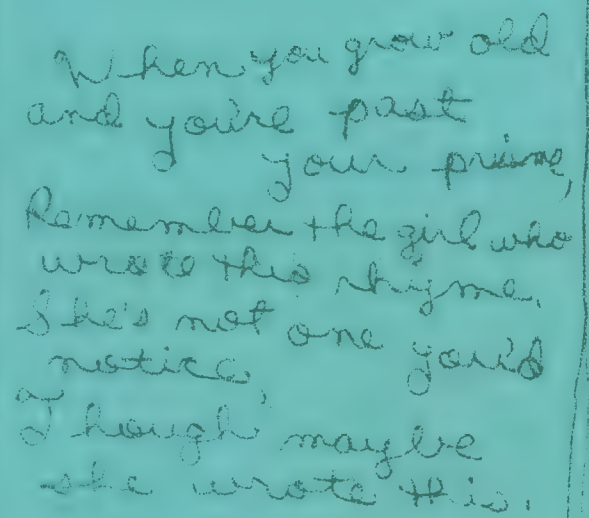 When you grow old
and you're past
your prime,
Remember the girl who
wrote this rhyme.
She's not one you'd
notice,
Though maybe
she wrote this.